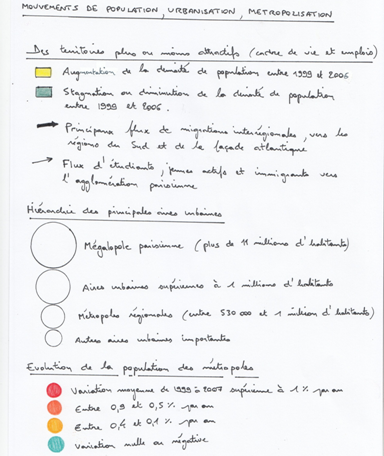 MOUVEMENTS DE POPULATION, URBANISATION, METROPOLISATION
Des territoires plus ou moins attractifs (cadre de vie et emplois)
Augmentation de la densité de population entre 1999 et 2006
Stagnation ou diminution de la densité de population
entre 1999 et 2006.
Principaux flux de migrations interrégionales, vers les
régions du Sud et de la façade atlantique
Flux d'étudiants, jeunes actifs et immigrants vers
l'agglomération parisienne
Hiérarchie des principales aires urbaines
Mégalopole parisienne (plus de 11 millions d'habitants)
Aires urbaines supérieures à 1 millions d'habitants
Métropoles régionales (entre 530 000 et 1 million d'habitants)
Autres aires urbaines importantes
Evolution de la population des métropoles
Variation moyenne de 1999 à 2007 supérieure à 1% par an
Entre 0,9 et 0,5% par an
Entre 0,4 et 0,1% par an
Variation nulle ou négative